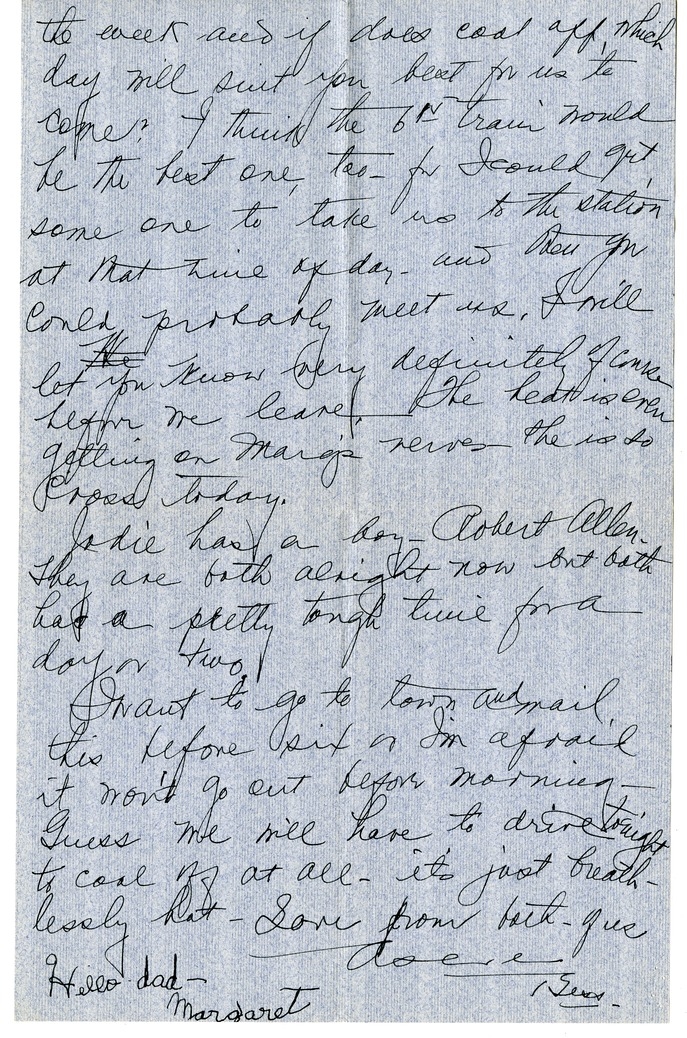 the week and if does cool off, which
day will suit you best for us to
come? I think the 6 train would
be the best one, too - for I could get
some one to take us to the station
at that time of day - and then you
could probably meet us. I will
let you know very definitely of course
before we leave. The heat is even
getting on Marg's nerves - she is so
cross today.
Jodie has a boy - Robert Allen.
They are both alright now but both
had a pretty tough time for a
day or two.
I want to go to town and mail
this before six or I'm afraid
it won't go out before morning -
Guess we will have to drive tonight
to cool off at all - it's just breath-
lessly hot - Love from both of us
Bess.
Hello dad -
Margaret